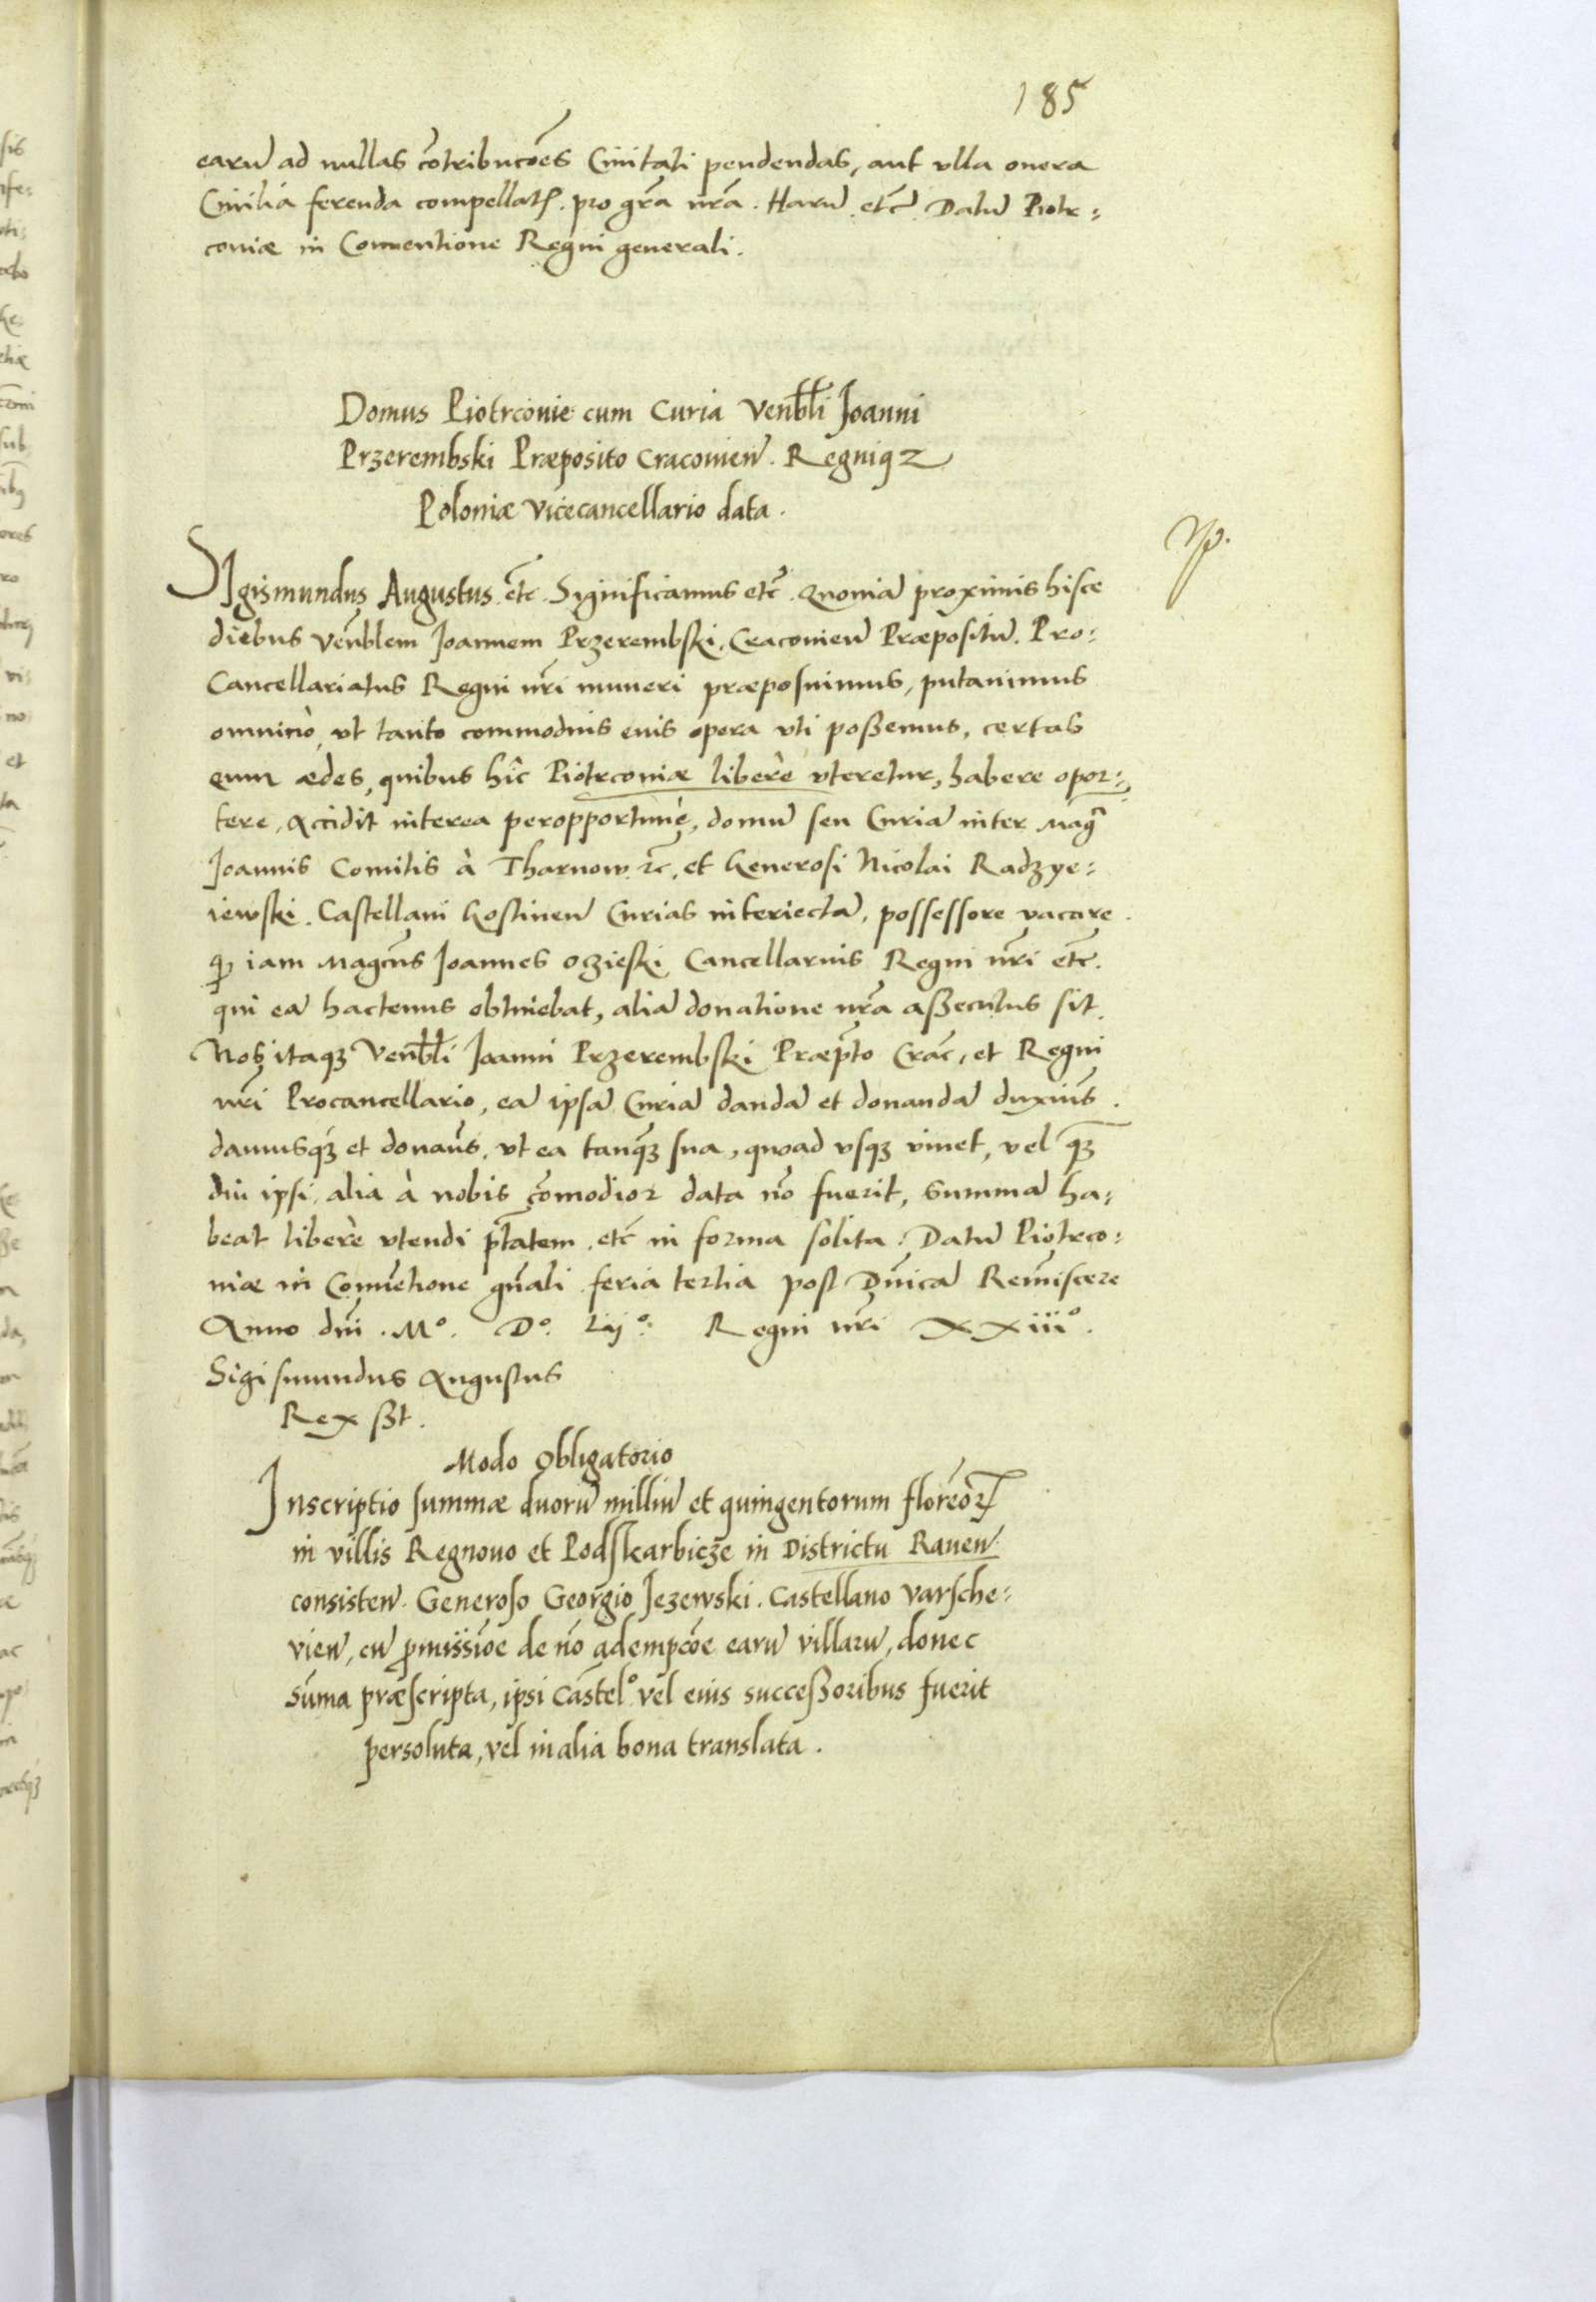 185
earū ad nullas cōtribucōes Ciuitati pendendas, aut vlla onera
Ciuilia ferenda compellat. pro grā nrā. Harū etc̄. Datū Piotr=
coniæ in Conuentione Regni generali.
Domus Piotrconie cum Curia Venbłi Joanni
Przerembski Præposito Cracouien̄. Regniqz
Poloniæ Vicecancellario data.
Np.
SIgismundus Augustus etc̄. Significamus etc̄. Quoniā proximis hisce
diebus Venb̄lem Joannem Przerembski, Cracouien̄ Præpositū. Pro=
Cancellariatus Regni nrī muneri præposuimus, putauimus
omninò, vt tanto commodius eius opera vti poßemus, certas
eum ædes, quibus hîc Piotrconiæ liberè vteretur, habere opor=
tere, Accidit interea peropportunè, domū seu Curiā inter Magcī
Joannis Comitis à Tharnow. etc̄, et Generosi Nicolai Radzye=
iewski. Castellani Gostinen̄ Curias interiectā, possessore vacare
qp iam Magcūs Joannes Oczieski Cancellarius Regni nrī etc̄.
qui eā hactenus obtinebat, aliā donatione nrā aßecutus sit.
Nos itaqz Venbłi Joanni Przerembski Præpto Crac̄, et Regni
nrī Procancellario, eā ipsā Curiā dandā et donandā duximꝰ.
damusqz et donamꝰ, vt ea tanqz sua, quoad vsqz viuet, vel qz
diu ipsi, alia à nobis cōmodior data nō fuerit, summā ha=
beat liberè vtendi ptātem. etc̄ in forma solita. Datū Piotrco=
niæ in Conuētione gn̄ali feria tertia post Dnīcā Remīscere
Anno dnī. Mº. Dº. Lijº. Regni nrī XXiiiº.
Sigismundus Augustus
Rex ßt.
Modo Obligatorio
Inscriptio summæ duorū milliū et quingentorum florēoꝝ
in villis Regnouo et Podskarbicze in Districtu Rauen̄
consisten̄. Generoso Georgio Jezewski. Castellano Varsche=
uien̄, cū promissiōe de nō adempcōe earū villarū, donec
Sūma præscripta, ipsi Castelº vel eius succeßoribus fuerit
persoluta, vel in alia bona translata.